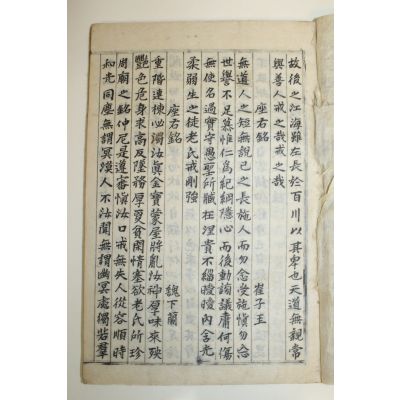 故後之江海雖左長於百川以其卑也天道無親常
與善人戒之哉戒之哉
座右銘
崔子玉
無道人之短無說己之長施人而勿念受施愼勿忘
世譽不足慕惟仁為紀綱隱心而後動謗議庸何傷
無使名過實守愚聖所臧在涅貴不緇曖曖內含光
柔弱生之徒老氏戒剛強
座右銘
魏卞蘭
重階連棟必濁汝真金寶蒙屋將亂汝神厚味來殃
艶色危身求高反墜務厚更貧閑情塞欲老氏所珍
周廟之銘仲尼是遵審愼汝口戒無失人從容順時
和光同塵無謂冥漠人不汝聞無謂幽冥處獨若羣